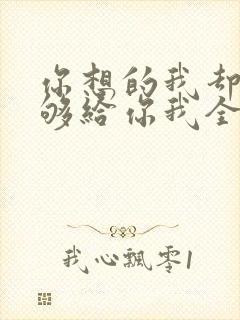 你想的我却
够给你我全
我心飘零1